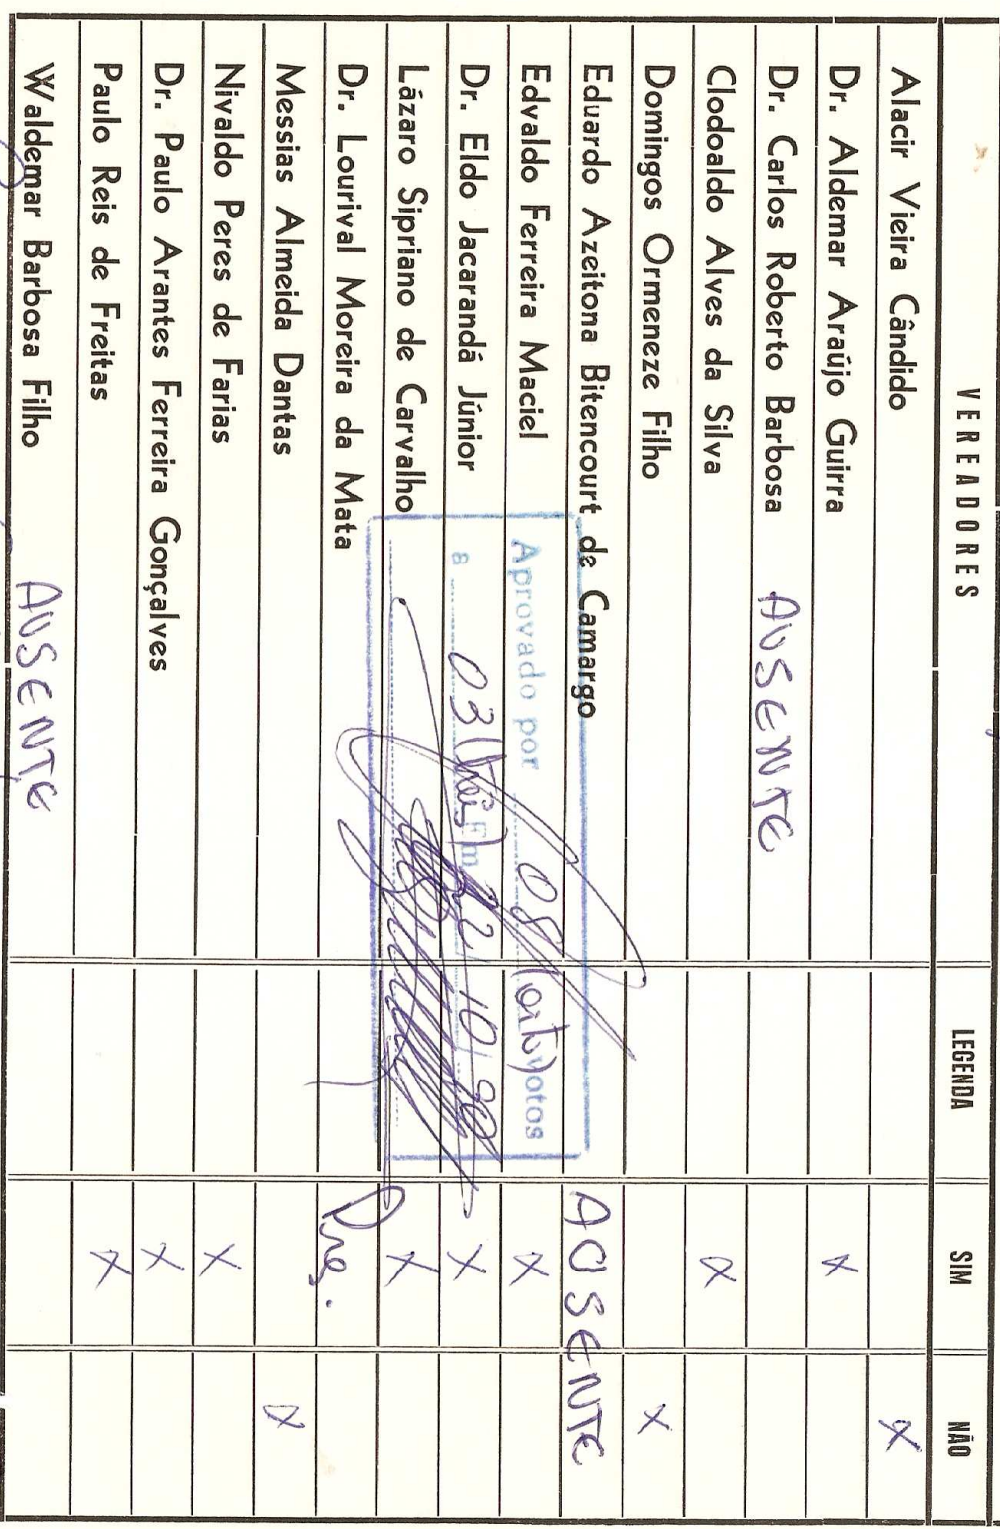 VEREADORES LEGENDA SIM NÃO
Alacir Vieira Cândido X
Dr. Aldemar Araújo Guirra X
Dr. Carlos Roberto Barbosa AUSENTE
Clodoaldo Alves da Silva X
Domingos Ormeneze Filho X
Eduardo Azeitona Bitencourt de Camargo AUSENTE
Edvaldo Ferreira Maciel X
Dr. Eldo Jacarandá Júnior X
Lázaro Sipriano de Carvalho X
Dr. Lourival Moreira da Mata Pres.
Messias Almeida Dantas X
Nivaldo Peres de Farias X
Dr. Paulo Arantes Ferreira Gonçalves X
Paulo Reis de Freitas X
Waldemar Barbosa Filho AUSENTE
Aprovado por 08 (oito) votos
a 03 (três) Em 2/10/90